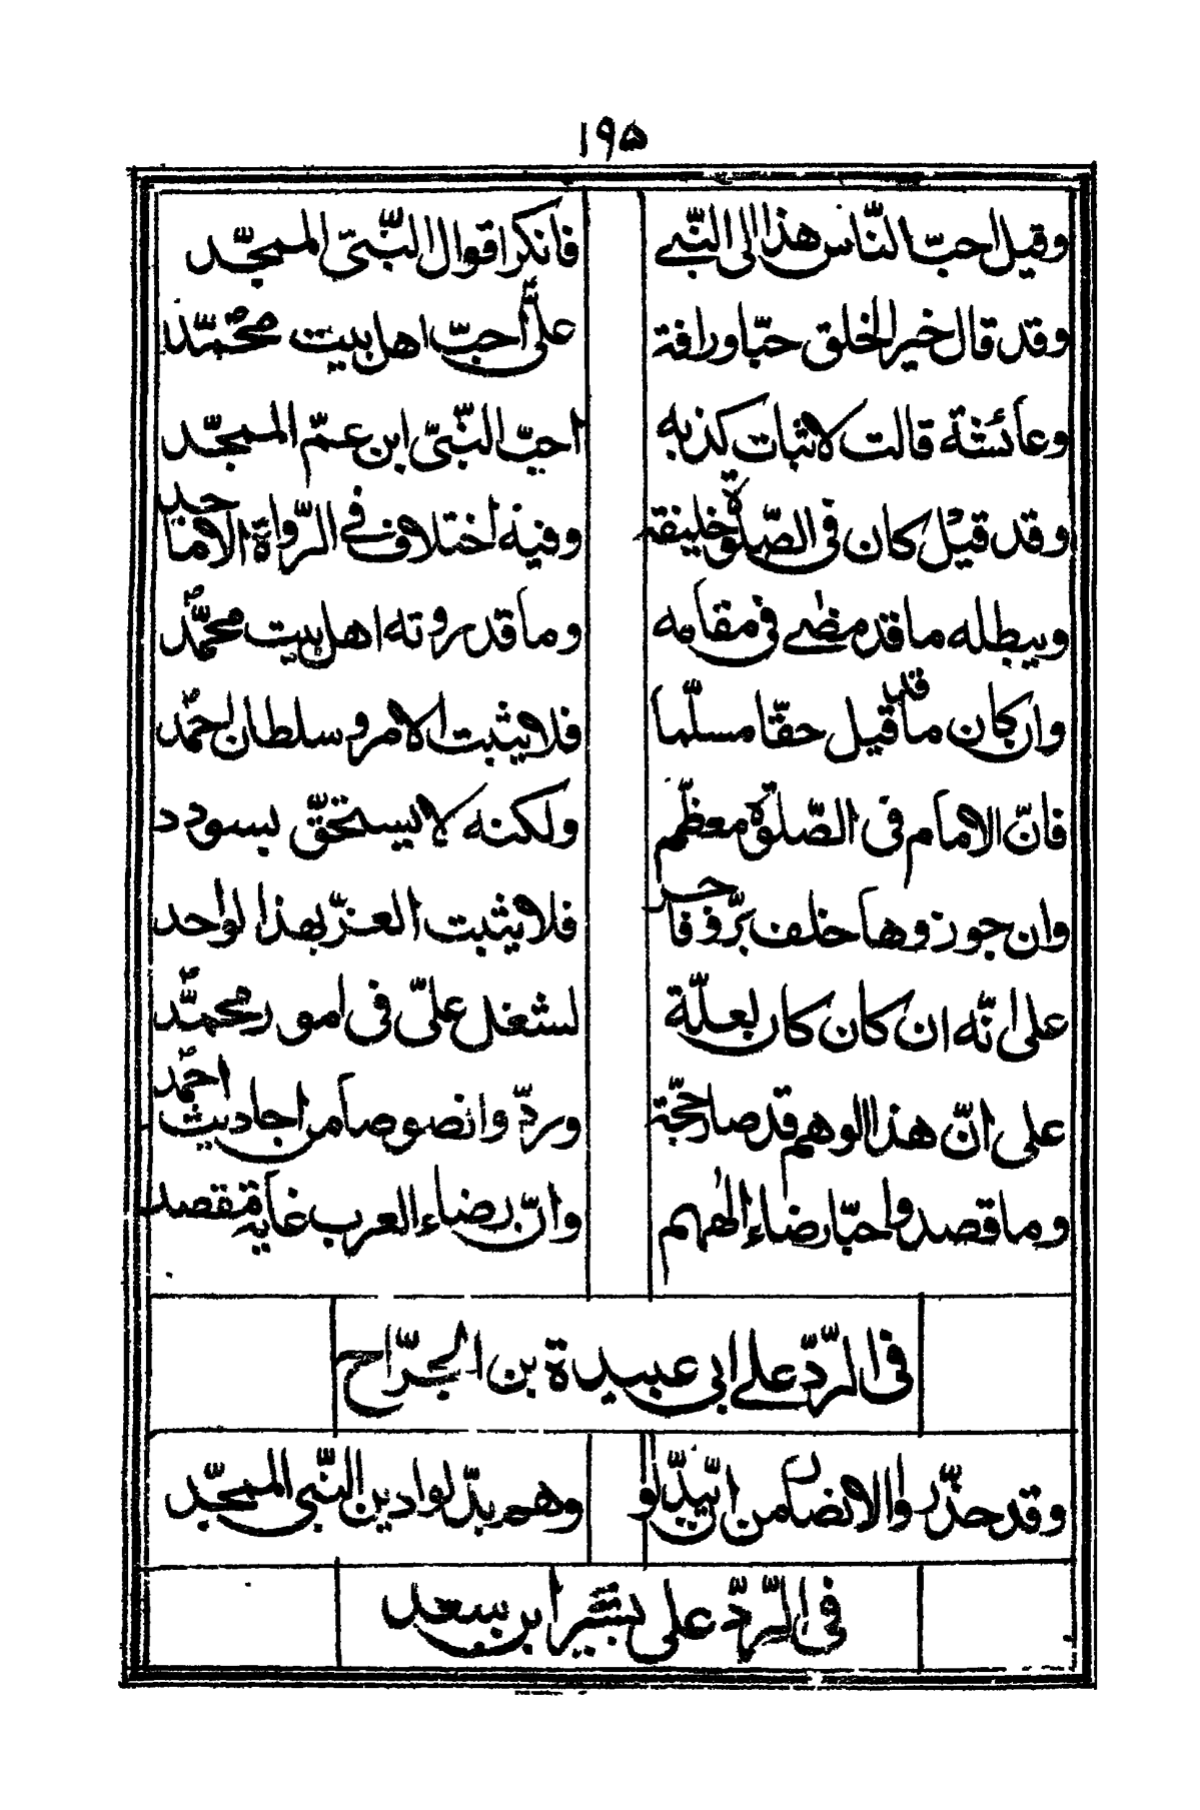 ١٩۵
وقيل احبّ النّاس هذا الى النّبے فانكر اقوال النّبىّ الممجّد
وقد قال خير الخلق حبّا ورافة علىّ احبّ اهل بيت محمّد
وعائشة قالت لاثبات كذبه احبّ النّبىّ ابن عمّ الممجّد
وقد قيل كان فى الصّلوة خليفة وفيه اختلاف فے الرّواة الاماجد
ويبطله ما قد مضے فى مقامه وما قد روته اهل بيت محمّد
وان كان ما قد قيل حقّا مسلّما فلا يثبت الامر وسلطان احمد
فانّ الامام فى الصّلوة معظّم ولكنه لا يستحقّ بسودد
وان جوزوها خلف برّ وفاجر فلا يثبت العزّ بهذا لواحد
على انّه ان كان كان لعلّة لشغل علىّ فى امور محمّد
على انّ هذا الوهم قد صار حجّة وردّوا نصوصا من احاديث احمد
وما قصدوا حبّا رضاء الٰههم وانّ رضاء العرب غاية مقصد
فى الرّدّ علے ابى عبيدة بن الجرّاح
وقد حذّروا الانصار من ان يبدّلوا وهم بدّلوا دين النّبى الممجّد
فى الرّدّ على بشير ابن سعد